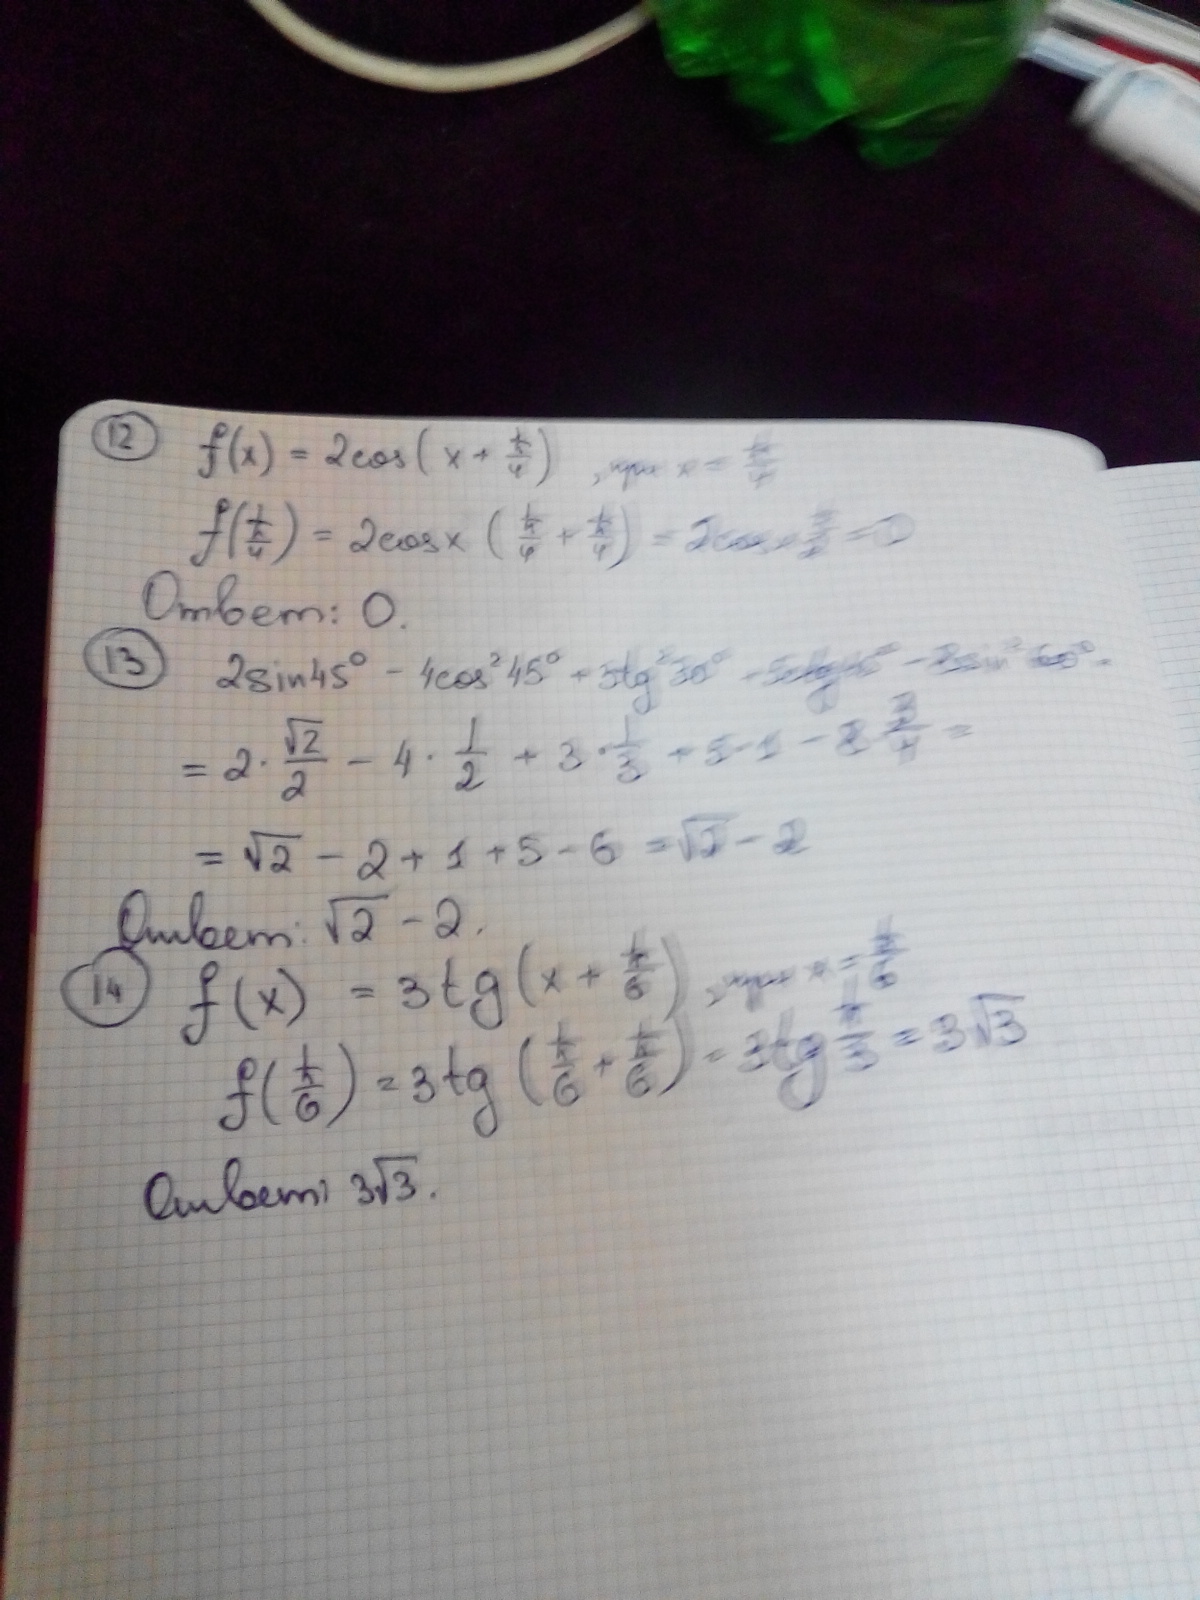 12 f(x) = 2cos(x + π/4), при x = π/4
f(π/4) = 2cosx (π/4 + π/4) = 2cos π/2 = 0
Ответ: 0.
13 2sin45° - 4cos²45° + 3tg²30° - 8sin²60° =
= 2 · √2/2 - 4 · 1/2 + 3 · 1/3 + 5 · 1 - 8 3/4 =
= √2 - 2 + 1 + 5 - 6 = √2 - 2
Ответ: √2 - 2.
14 f(x) = 3tg(x + π/6), при x = π/6
f(π/6) = 3tg (π/6 + π/6) = 3tg π/3 = 3√3
Ответ: 3√3.